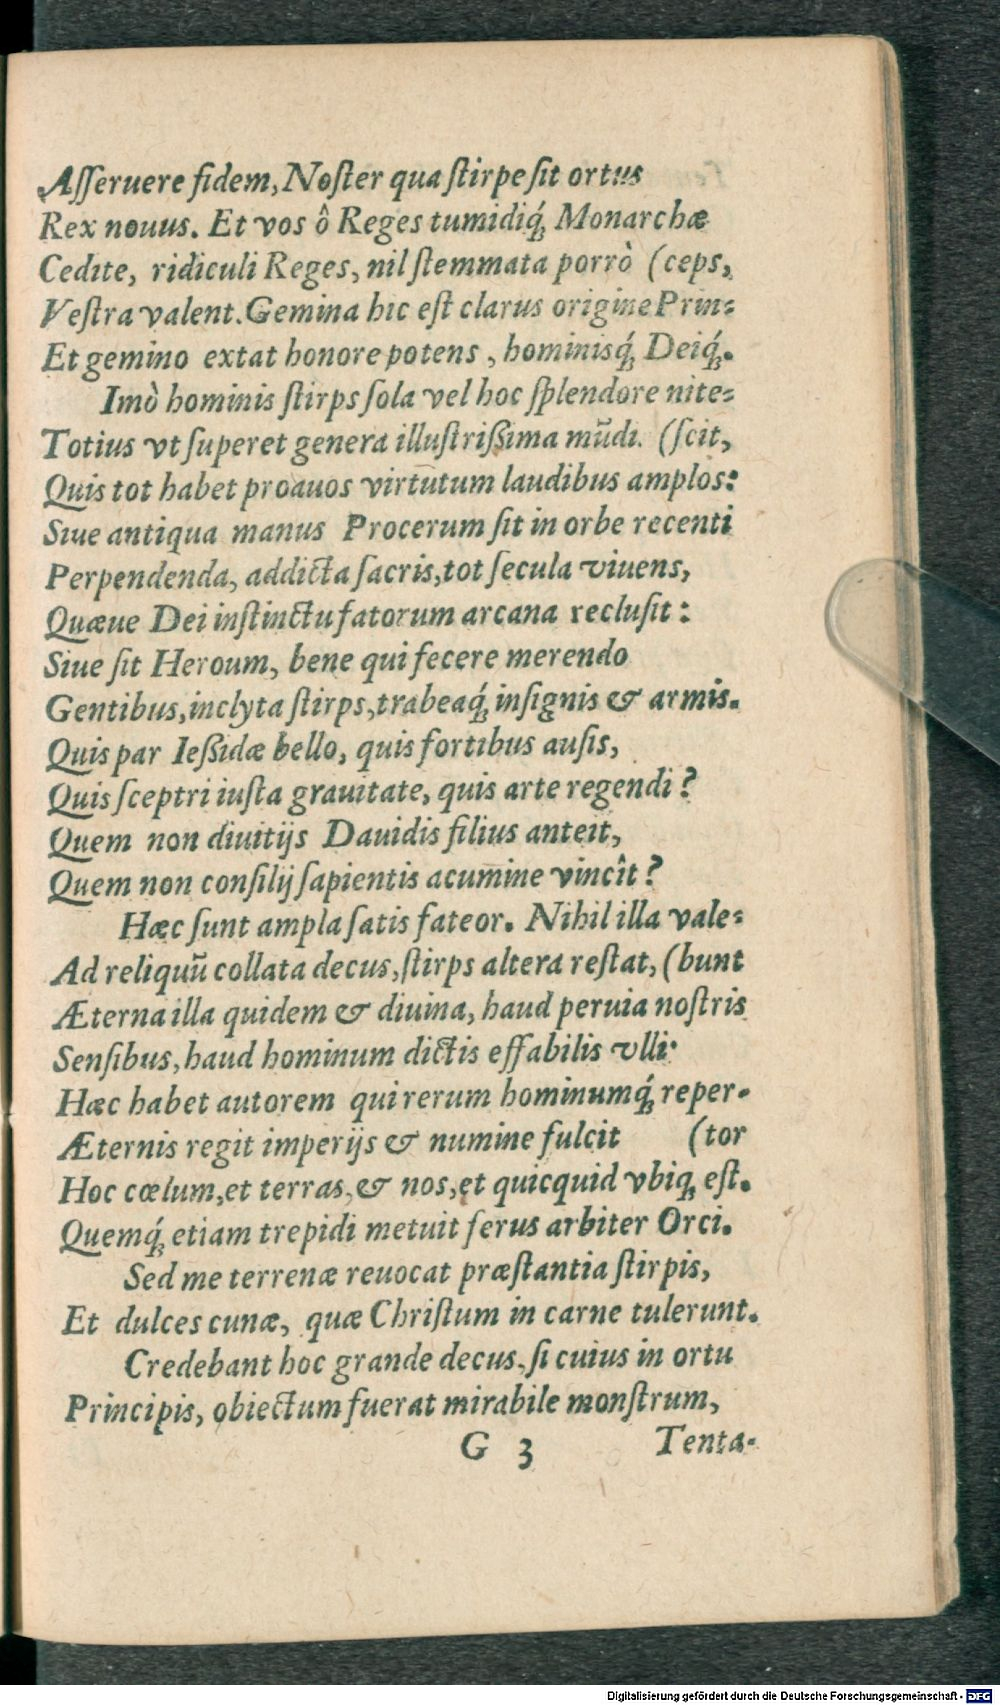 Aſſeruere fidem, Noſter qua ſtirpe ſit ortus
Rex nouus. Et vos ô Reges tumidiq́; Monarchæ
Cedite, ridiculi Reges, nil ſtemmata porrò (ceps,
Veſtra valent. Gemina hic eſt clarus origine Prin-
Et gemino extat honore potens, hominisq́; Deiq́;.
Imò hominis ſtirps ſola vel hoc ſplendore nite-
Totius vt ſuperet genera illuſtrißima mũdi. (ſcit,
Quis tot habet proauos virtutum laudibus amplos:
Siue antiqua manus Procerum ſit in orbe recenti
Perpendenda, addicta ſacris, tot ſecula viuens,
Quæue Dei inſtinctu fatorum arcana recluſit:
Siue ſit Heroum, bene qui fecere merendo
Gentibus, inclyta ſtirps, trabeaq́; inſignis & armis.
Quis par Ießidæ bello, quis fortibus auſis,
Quis ſceptri iuſta grauitate, quis arte regendi?
Quem non diuitijs Dauidis filius anteit,
Quem non conſilij ſapientis acumine vincît?
Hæc ſunt ampla ſatis fateor. Nihil illa vale-
Ad reliquũ collata decus, ſtirps altera reſtat, (bunt
Æterna illa quidem & diuina, haud peruia noſtris
Senſibus, haud hominum dictis effabilis vlli:
Hæc habet autorem qui rerum hominumq́; reper-
Æternis regit imperijs & numine fulcit (tor
Hoc cœlum, et terras, & nos, et quicquid vbiq; eſt.
Quemq́; etiam trepidi metuit ferus arbiter Orci.
Sed me terrenæ reuocat præſtantia ſtirpis,
Et dulces cunæ, quæ Chriſtum in carne tulerunt.
Credebant hoc grande decus, ſi cuius in ortu
Principis, obiectum fuerat mirabile monſtrum,
G 3 Tenta-
Digitalisierung gefördert durch die Deutsche Forschungsgemeinschaft - DFG